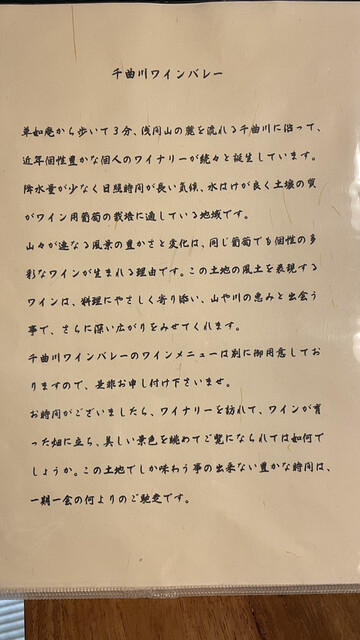 千曲川ワインバレー
草如庵から歩いて3分、浅間山の麓を流れる千曲川に沿って、
近年個性豊かな個人のワイナリーが続々と誕生しています。
降水量が少なく日照時間が長い気候、水はけが良く土壌の質
がワイン用葡萄の栽培に適している地域です。
山々が連なる風景の豊かさと変化は、同じ葡萄でも個性の多
彩なワインが生まれる理由です。この土地の風土を表現する
ワインは、料理にやさしく寄り添い、山や川の恵みと出会う
事で、さらに深い広がりをみせてくれます。
千曲川ワインバレーのワインメニューは別に御用意してお
りますので、是非お申し付け下さいませ。
お時間がございましたら、ワイナリーを訪れて、ワインが育
った畑に立ち、美しい景色を眺めてご覧になられては如何で
しょうか。この土地でしか味わう事の出来ない豊かな時間は、
一期一会の何よりのご馳走です。